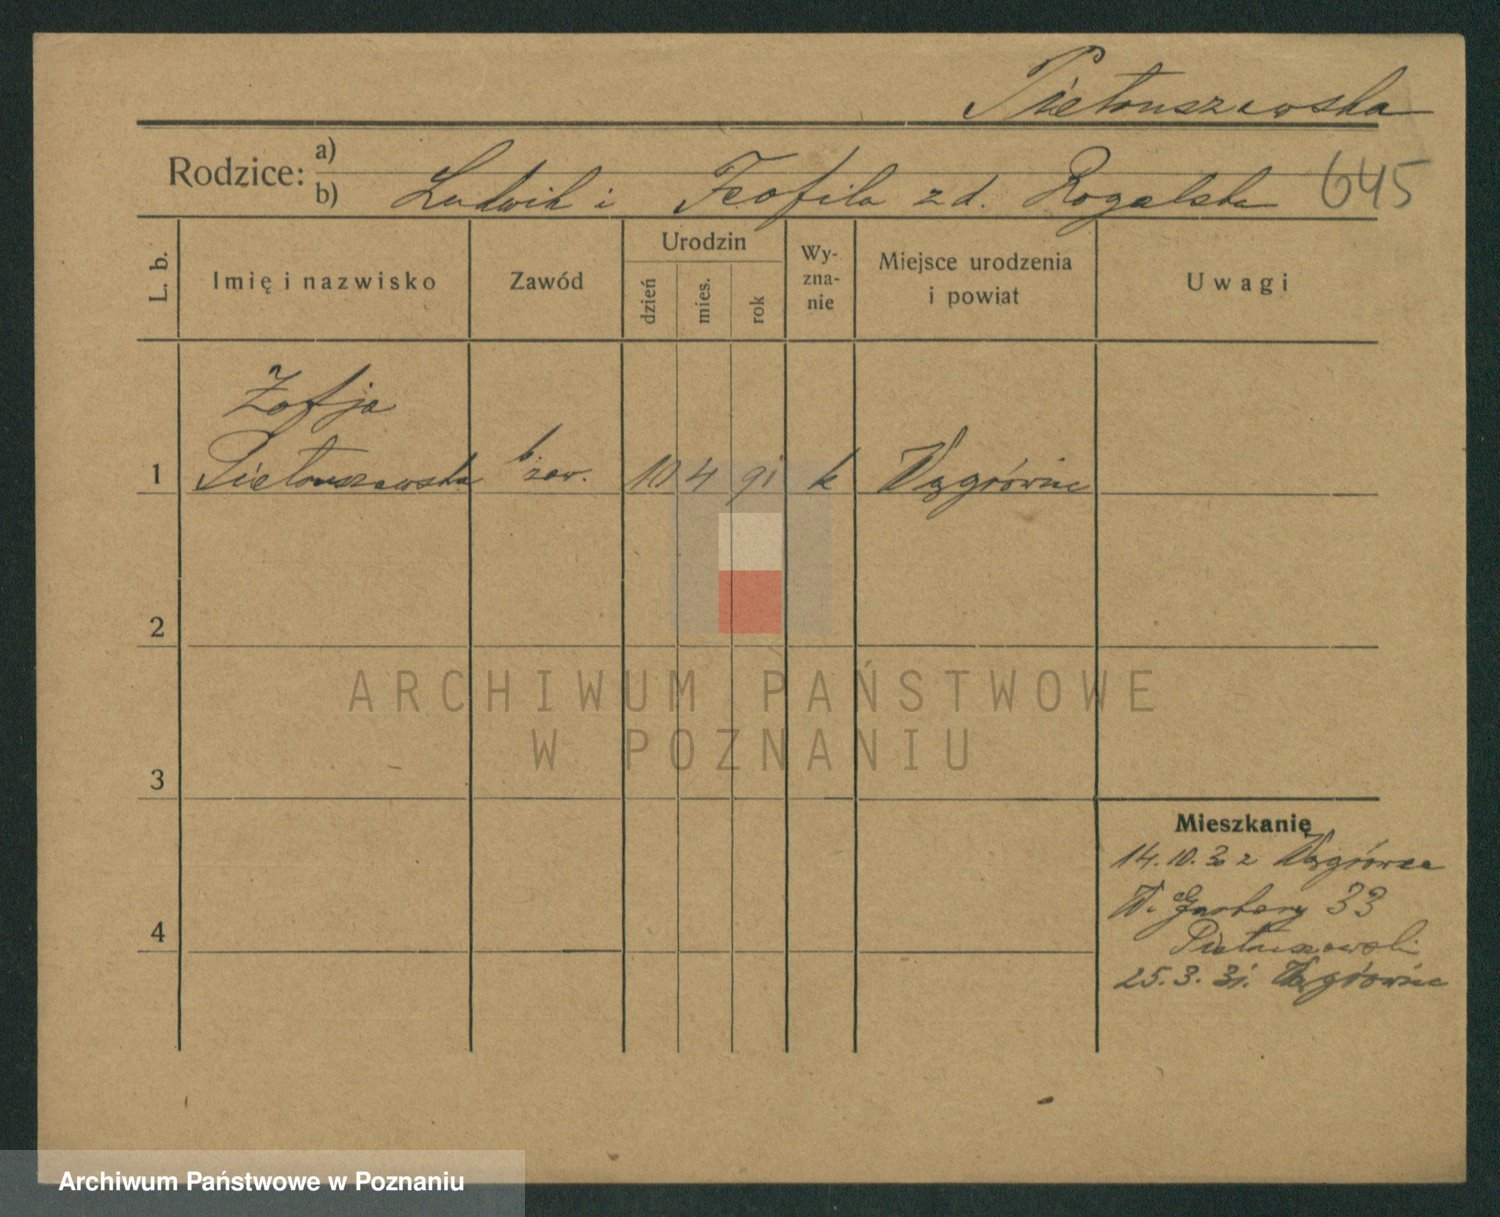 Pietruszewska
Rodzice: a)
b) Ludwik i Teofila z d. Rogalska 645
L. b.
Imię i nazwisko
Zawód
Urodzin
dzień
mies.
rok
Wy-
zna-
nie
Miejsce urodzenia
i powiat
Uwagi
Zofja
1 Pietruszewska b. zaw. 10 4 91 k Wągrówiec
2
3
4
Mieszkanie
14.10.30 z Wągrówca
W. Garbary 33
Pietruszewski
25.3.31. Wągrówiec
ARCHIWUM PAŃSTWOWE
W POZNANIU
Archiwum Państwowe w Poznaniu